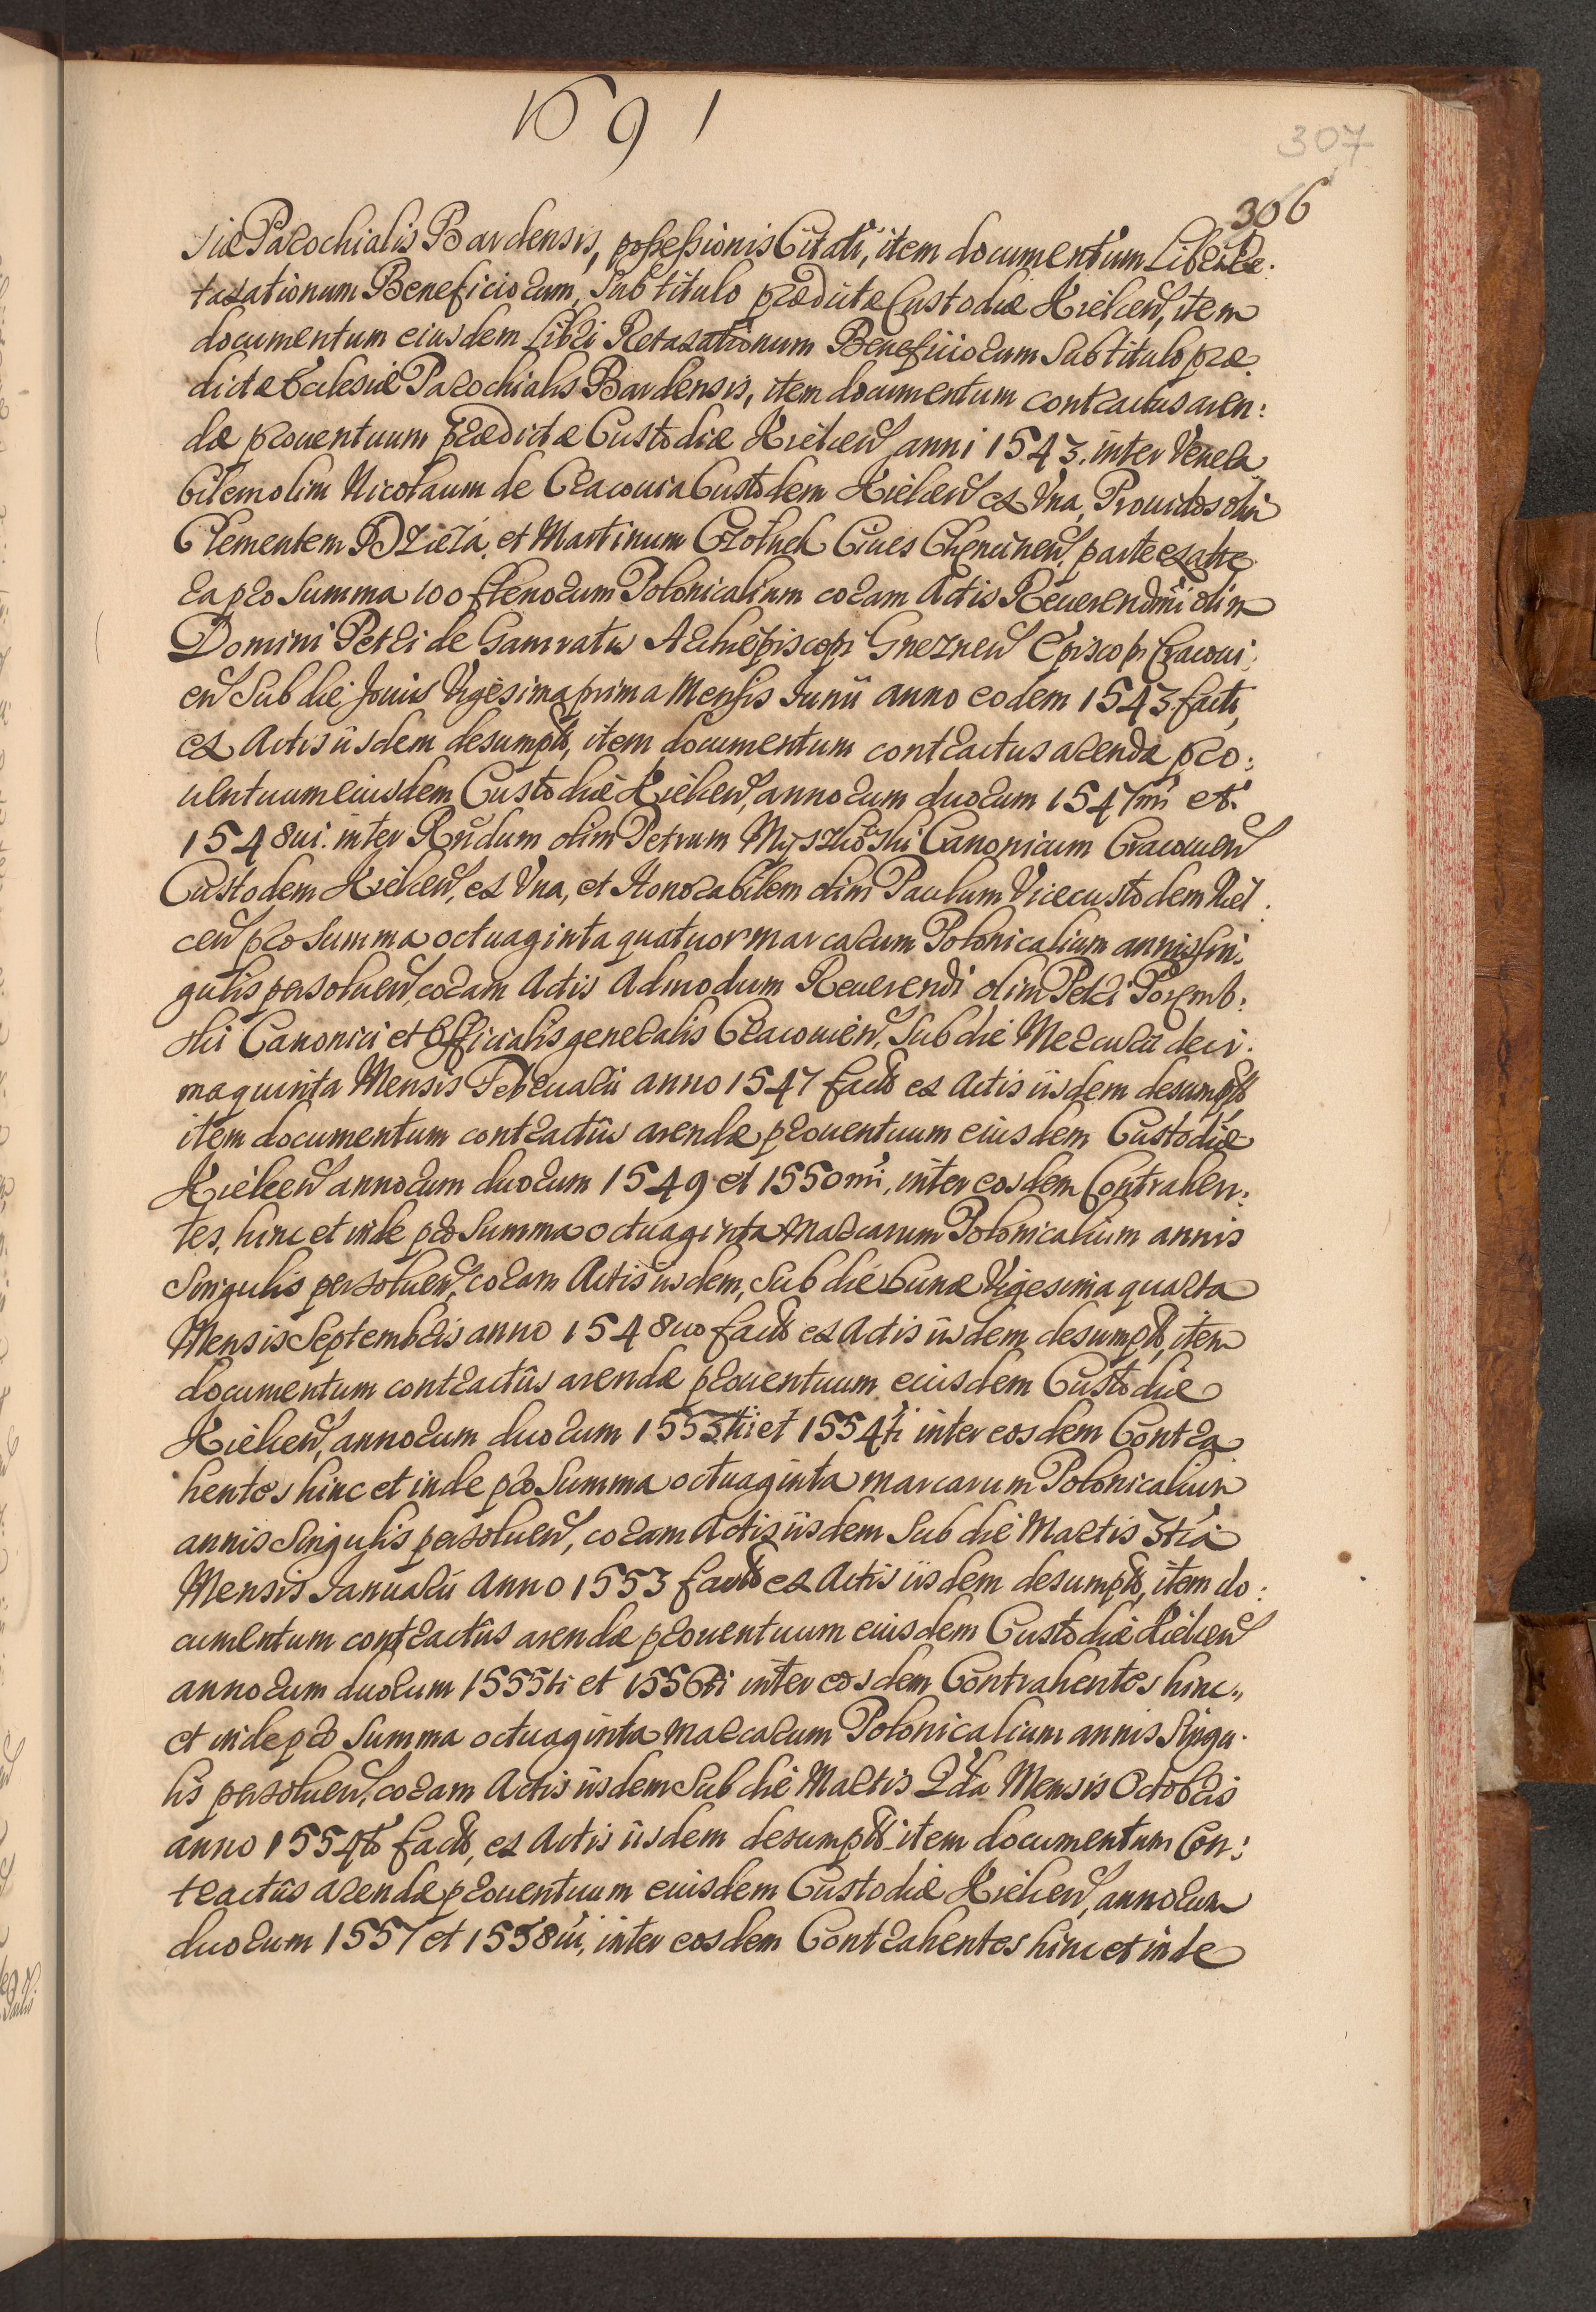 1691
307
306
siæ Parochialis Bardensis, possessionis Citati, item documentum Libri Re:
taxationum Beneficiorum, Sub titulo prædictæ Custodiæ Kielcen, item
documentum eiusdem Libri Retaxationum Beneficiorum Sub titulo præ:
dictæ Ecclesiæ Parochialis Bardensis, item documentum contractus aren:
dæ prouentuum prædictæ Custodiæ Kielcen anni 1543. inter Venera
bilem olim Nicolaum de Cracouia Custodem Kielcen ex Vna, Prouidos olim
Clementem et Martinum Ciues Chencinen, parte ex alte
ra pro Summa 100 flenorum Polonicalium coram Actis Reuerendmi olim
Domini Petri de Gamratis Archiepiscopi Gneznen Episcopi Cracoui:
en Sub die Jouis Vigesima prima Mensis Junii anno eodem 1543. facti,
ex Actis iisdem desumptu, item documentum contractus arendæ pro:
uentuum eiusdem Custodiæ Kielcen, annorum duorum 1547mi et
1548ui. inter Rndum olim Petrum Myszkoski Canonicum Cracouien
Custodem Kielcen, ex Vna, et Honorabilem olim Paulum Vicecustodem Kiel:
cen pro Summa octuaginta quatuor marcarum Polonicalium annis sin:
gulis persoluen, coram Actis Admodum Reuerendi olim Petri Poremb:
ski Canonici et Officialis generalis Cracouien, Sub die Mercurii deci:
ma quinta Mensis Februarii anno 1547 facto ex Actis iisdem desumpto
item documentum contractûs arendæ prouentuum eiusdem Custodiæ
Kielcen annorum duorum 1549 et 1550mi, inter eosdem Contrahen:
tes, hinc et inde pro Summa octuaginta Marcarum Polonicalium annis
Singulis persoluen, coram Actis iisdem, Sub die Lunæ Vigesima quarta
Mensis Septembris anno 1548uo facto ex Actis iisdem desumpto, item
documentum contractûs arendæ prouentuum eiusdem Custodiæ
Kielcen, annorum duorum 1553tii et 1554ti inter eosdem Contra
hentes hinc et inde pro Summa octuaginta marcarum Polonicalium
annis Singulis persoluen, coram Actis iisdem Sub die Martis 3tia
Mensis Januarii Anno 1553 facto ex Actis iisdem desumpto, item do:
cumentum contractûs arendæ prouentuum eiusdem Custodiæ Kielcen
annorum duorum 1555ti et 1556ti inter eosdem Contrahentes hinc
et inde pro Summa octuaginta Marcarum Polonicalium annis Singu:
lis persoluen, coram Actis iisdem Sub die Martis 2da Mensis Octobris
anno 1554to facto, ex Actis iisdem desumpto item documentum Con:
tractûs arendæ prouentuum eiusdem Custodiæ Kielcen, annorum
duorum 1557 et 1558ui, inter eosdem Contrahentes hinc et inde